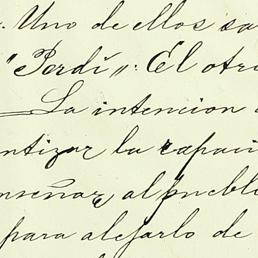 . Uno de ellos sa
"Perdí": El otro
La intencion
ntizar la capaci
nseñar al pueblo
para alejarlo de